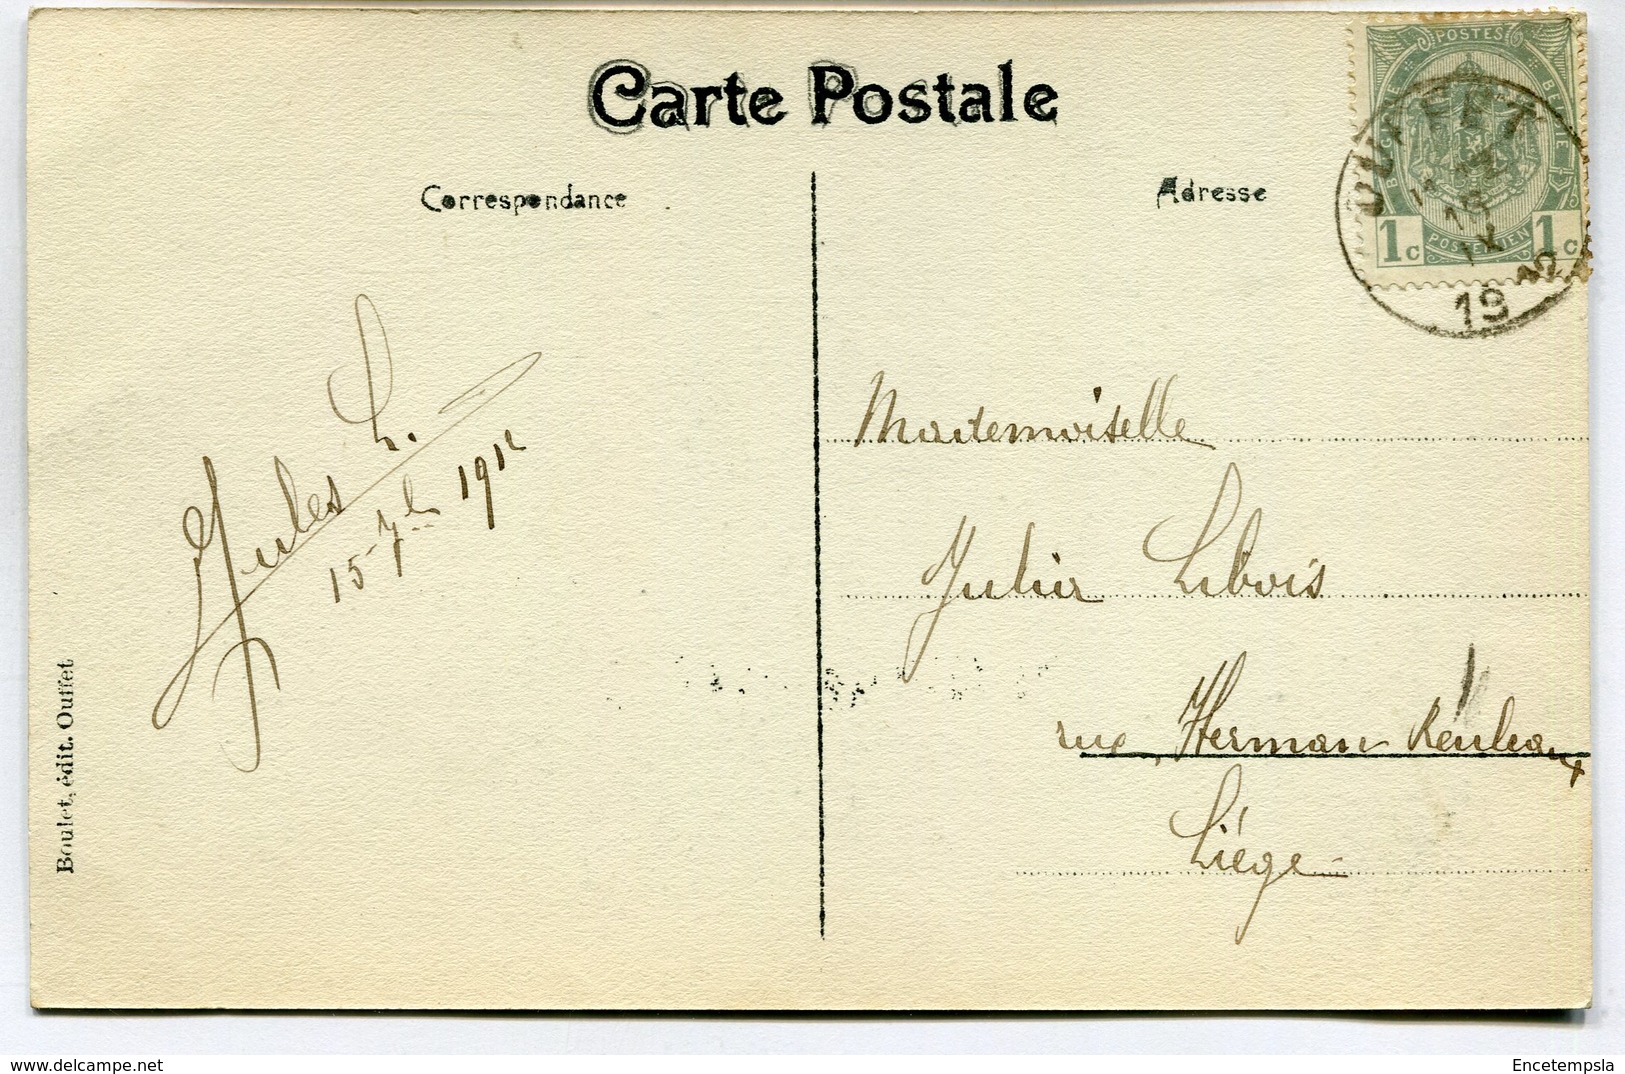 Carte Postale
Correspondance
Adresse
POSTES
BELGIQUE
BELGIE
POSTERIJEN
1c 1c
OUFFET
18
IX
19 12
Jules L.
15-7bre 1912
Mademoiselle
Julia Libois
rue Herman Reuleaux
Liége
Boulet, édit. Ouffet
Encetempsla